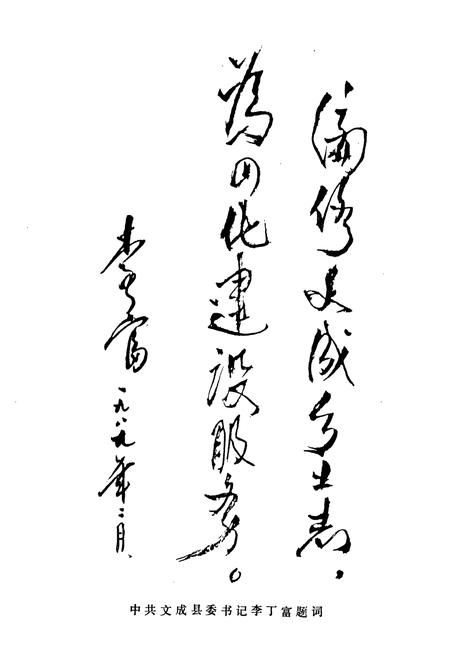 编修文成乡土志，
为四化建设服务。
李丁富
一九八九年二月
中共文成县委书记李丁富题词